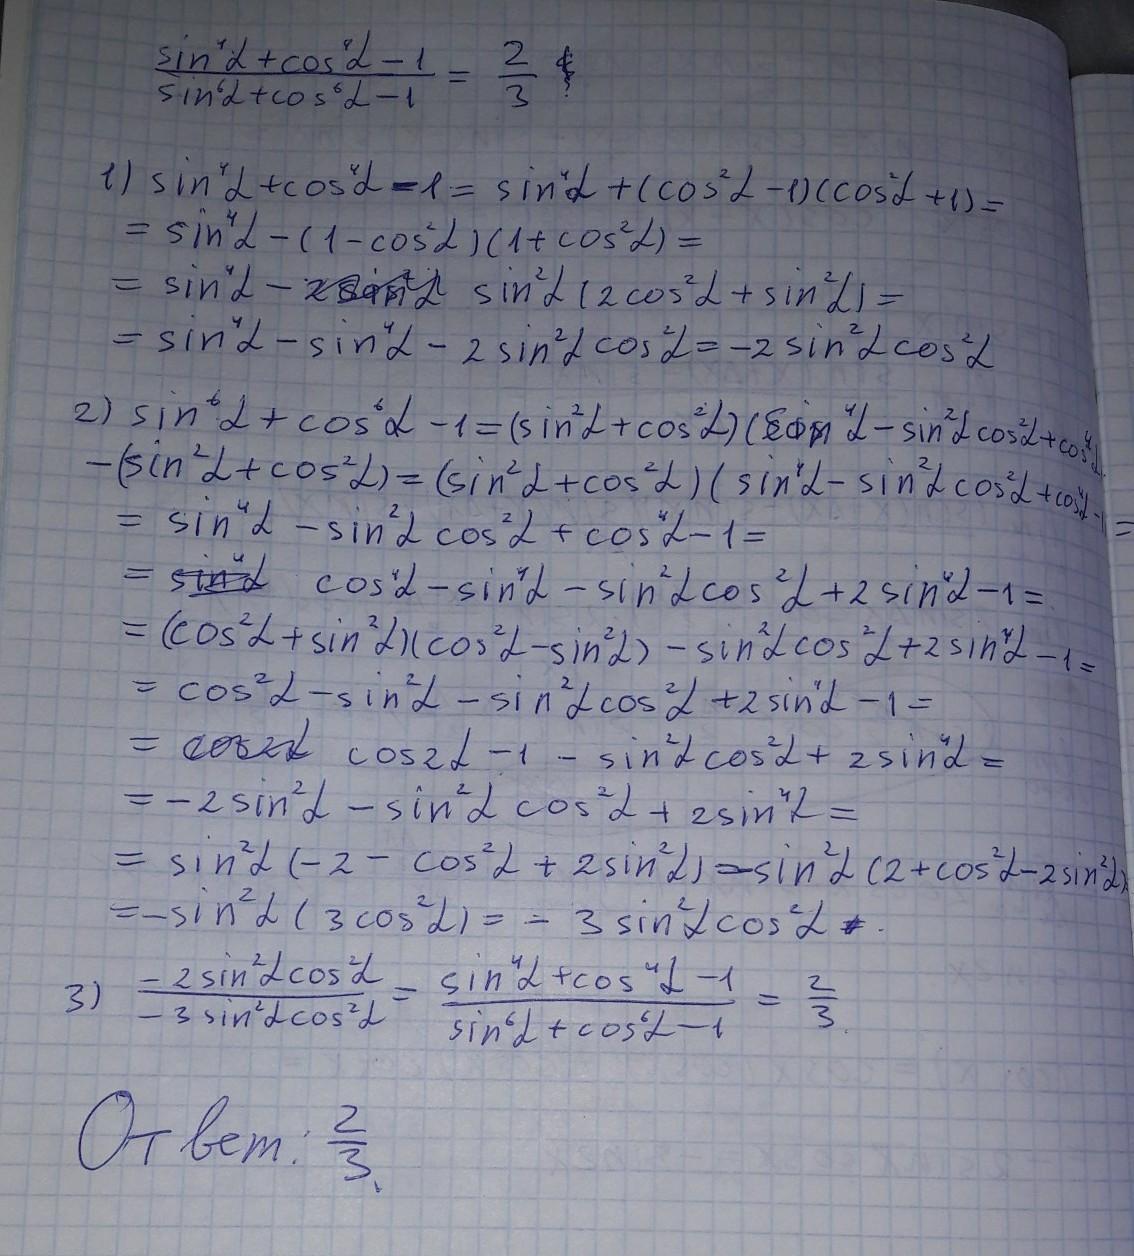 sin⁴α + cos⁴α − 1 / sin⁶α + cos⁶α − 1 = 2/3
1) sin⁴α + cos⁴α − 1 = sin⁴α + (cos²α − 1)(cos²α + 1) =
= sin⁴α − (1 − cos²α)(1 + cos²α) =
= sin⁴α − sin²α (2cos²α + sin²α) =
= sin⁴α − sin⁴α − 2sin²α cos²α = −2sin²α cos²α
2) sin⁶α + cos⁶α − 1 = (sin²α + cos²α)(sin⁴α − sin²α cos²α + cos⁴α)
−(sin²α + cos²α) = (sin²α + cos²α)(sin⁴α − sin²α cos²α + cos⁴α − 1 =
= sin⁴α − sin²α cos²α + cos⁴α − 1 =
= cos⁴α − sin⁴α − sin²α cos²α + 2sin⁴α − 1 =
= (cos²α + sin²α)(cos²α − sin²α) − sin²α cos²α + 2sin⁴α − 1 =
= cos²α − sin²α − sin²α cos²α + 2sin⁴α − 1 =
= cos2α − 1 − sin²α cos²α + 2sin⁴α =
= −2sin²α − sin²α cos²α + 2sin⁴α =
= sin²α (−2 − cos²α + 2sin²α) = −sin²α (2 + cos²α − 2sin²α)
= −sin²α (3cos²α) = −3sin²α cos²α.
3) −2sin²α cos²α / −3sin²α cos²α = sin⁴α + cos⁴α − 1 / sin⁶α + cos⁶α − 1 = 2/3.
Ответ: 2/3.